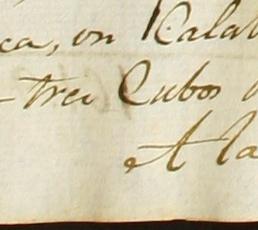 ca, en Calat
-trei Cubos
A la